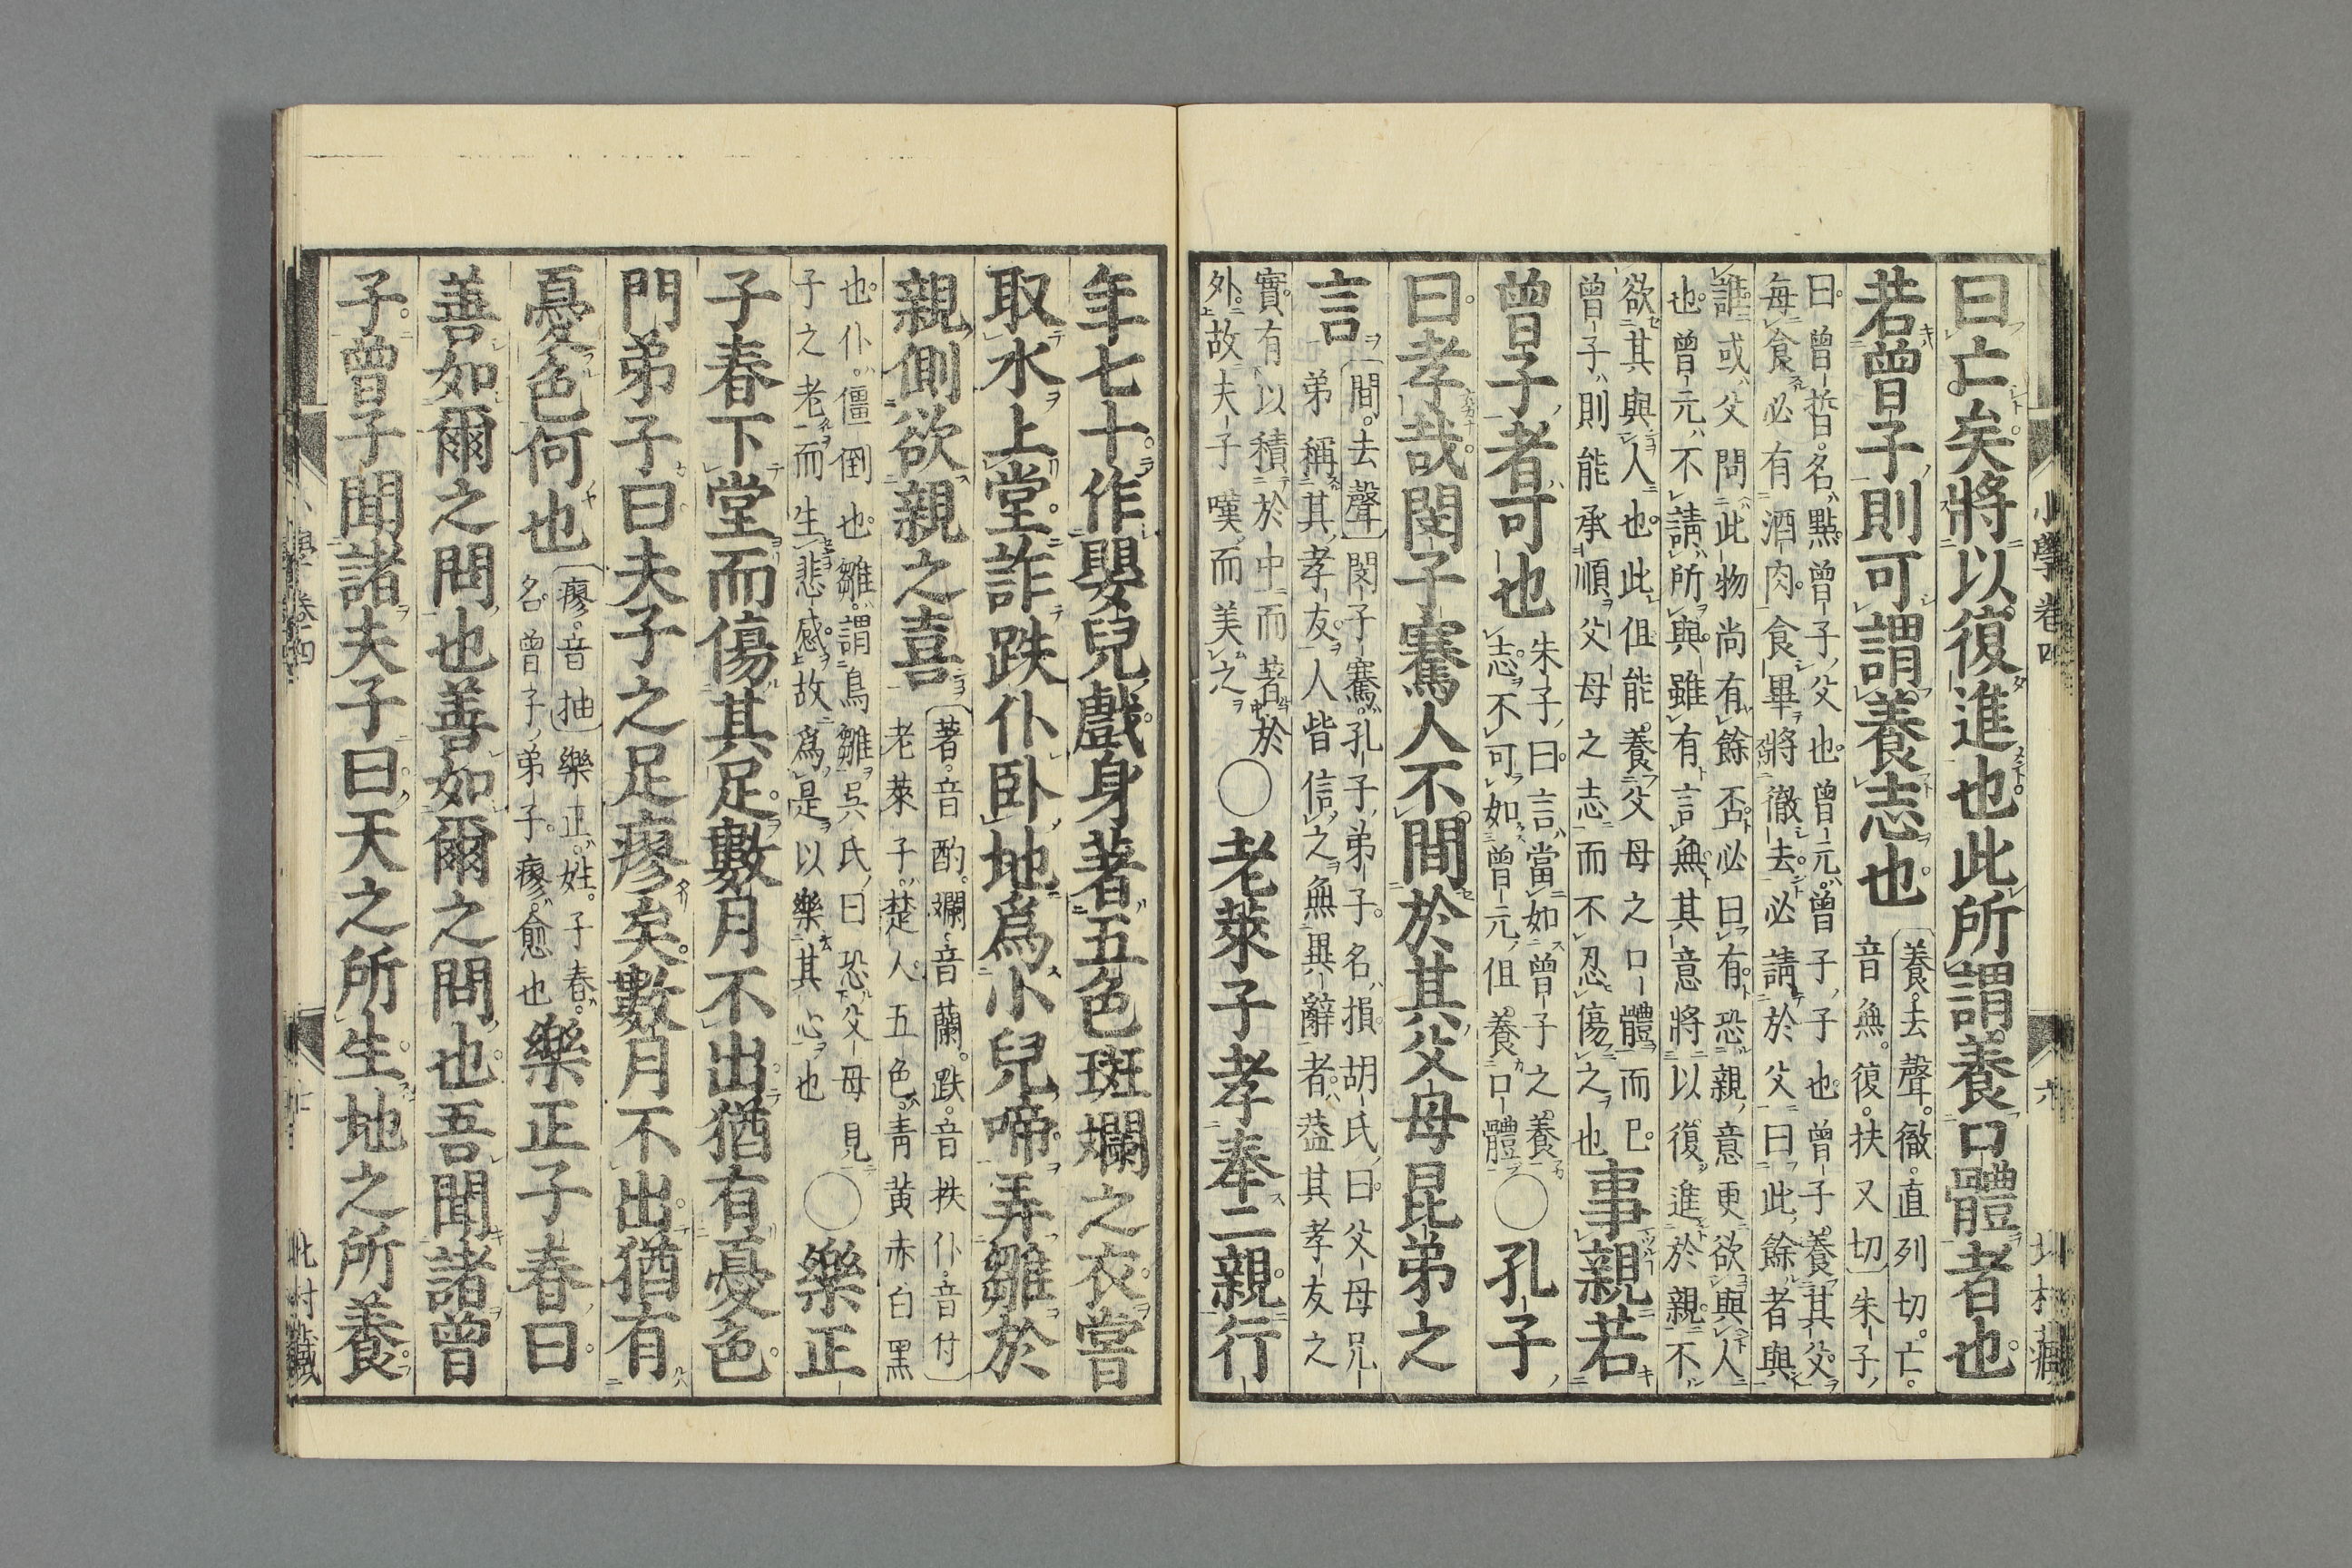 小學卷四
六
曰亡矣將以復進也此所謂養口體者也
若曾子則可謂養志也
養去聲徹直列切亡
音無復扶又切朱子
曰曾晳名點曾子父也曾元曾子子也曾子養其父
每食必有酒肉食畢將徹去必請於父曰此餘者與
誰或父問此物尚有餘否必曰有恐親意更欲與人
也曾元不請所與雖有言無其意將以復進於親不
欲其與人也此但能養父母之口體而已
曾子則能承順父母之志而不忍傷之也
事親若
曾子者可也
朱子曰言當如曾子之養
志不可如曾元但養口體
○孔子
曰孝哉閔子騫人不間於其父母昆弟之
言
間去聲閔子騫孔子弟子名損胡氏曰父母兄
弟稱其孝友人皆信之無異辭者蓋其孝友之
實有以積於中而著於
外故夫子嘆而美之
○老萊子孝奉二親行
年七十作嬰兒戲身著五色斑斕之衣嘗
取水上堂詐跌仆臥地爲小兒啼弄雛於
親側欲親之喜
著音酌斕音蘭跌音抶仆音付
老萊子楚人五色靑黃赤白黑
也仆僵倒也雛謂鳥雛吳氏曰恐父母見
子之老而生悲感故爲是以樂其心也
○樂正
子春下堂而傷其足數月不出猶有憂色
門弟子曰夫子之足瘳矣數月不出猶有
憂色何也
瘳音抽樂正姓子春
名曾子弟子瘳愈也
樂正子春曰
善如爾之問也善如爾之問也吾聞諸曾
子曾子聞諸夫子曰天之所生地之所養
小學卷四
北村藏